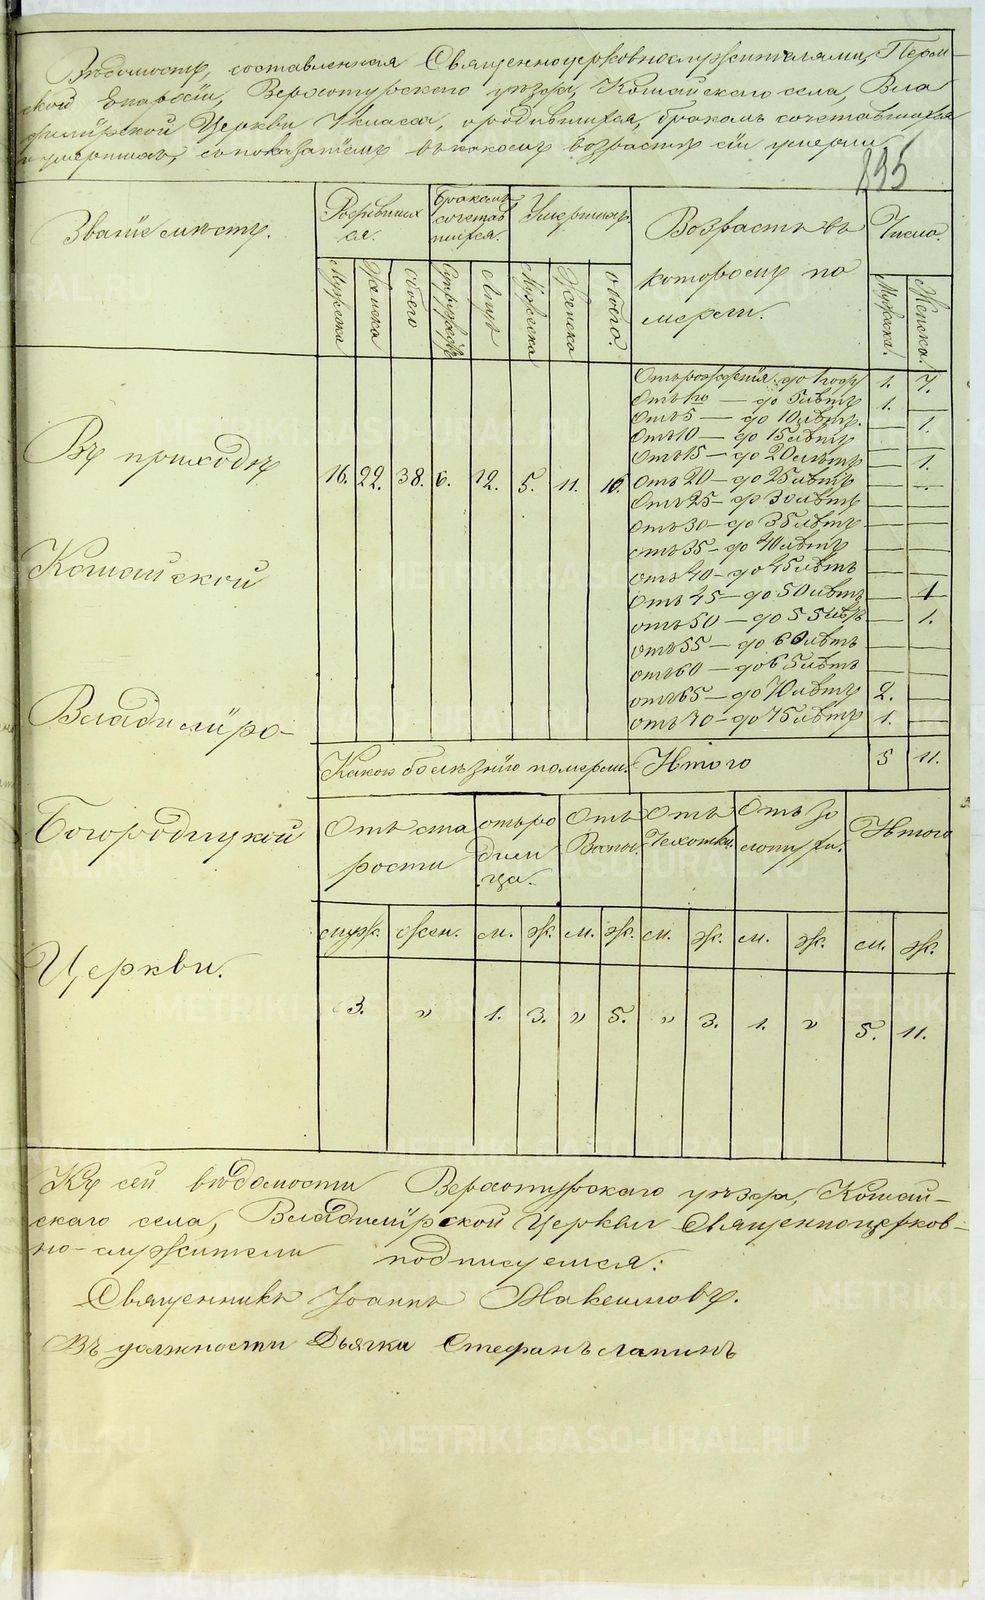 Вѣдомость, составленная Священноцерковнослужителями, Перм-
ской Епархіи, Верхотурскаго уѣзда, Кошайскаго села, Вла
димірской Церкви класса, о родившихся, бракомъ сочетавшихся
и умершихъ, съ показаніемъ въ какомъ возрастѣ сіи умерли.
295
Званіе мѣстъ.
Родившихся.
Бракомъ сочетавшихся.
Умершихъ.
Возрастъ въ которомъ померли.
Число.
Мужска Женска Обоего Супружествъ Лицъ Мужеска Женска Обоего. Мужска. Женска.
Отъ рожденія до 1 года 1. 7.
Отъ 1го — до 5 лѣтъ 1. —
Отъ 5 — до 10 лѣтъ. — 1.
Отъ 10 — до 15 лѣтъ — —
Отъ 15 — до 20 лѣтъ — 1.
Отъ 20 — до 25 лѣтъ — —
Отъ 25 — до 30 лѣтъ — —
Отъ 30 — до 35 лѣтъ — —
отъ 35 — до 40 лѣтъ — —
отъ 40 — до 45 лѣтъ — —
отъ 45 — до 50 лѣтъ — 1
отъ 50 — до 55 лѣтъ — 1.
отъ 55 — до 60 лѣтъ — —
отъ 60 — до 65 лѣтъ — —
отъ 65 — до 70 лѣтъ 2. —
отъ 70 — до 75 лѣтъ 1. —
Въ приходѣ 16. 22. 38. 6. 12. 5. 11. 16.
Кошайской
Владиміро-
Богородицкой
Церкви.
Какою болѣзнію померли. Итого 5 11.
Отъ старости отъ родимца. Отъ Воспы. Отъ Чехотки. Отъ Золотухи. Итого
муж. жен. м. ж. м. ж. м. ж. м. ж. м. ж.
3. „ 1. 3. „ 5. „ 3. 1. „ 5. 11.
Къ сей вѣдомости Верхотурскаго уѣзда, Кошай-
скаго села, Владимірской Церкви Священноцерков-
но-служители подписуемся:
Священникъ Іоаннъ Максимовъ.
Въ должности Дьячка Стефанъ Лапинъ
METRIKI.GASO-URAL.RU